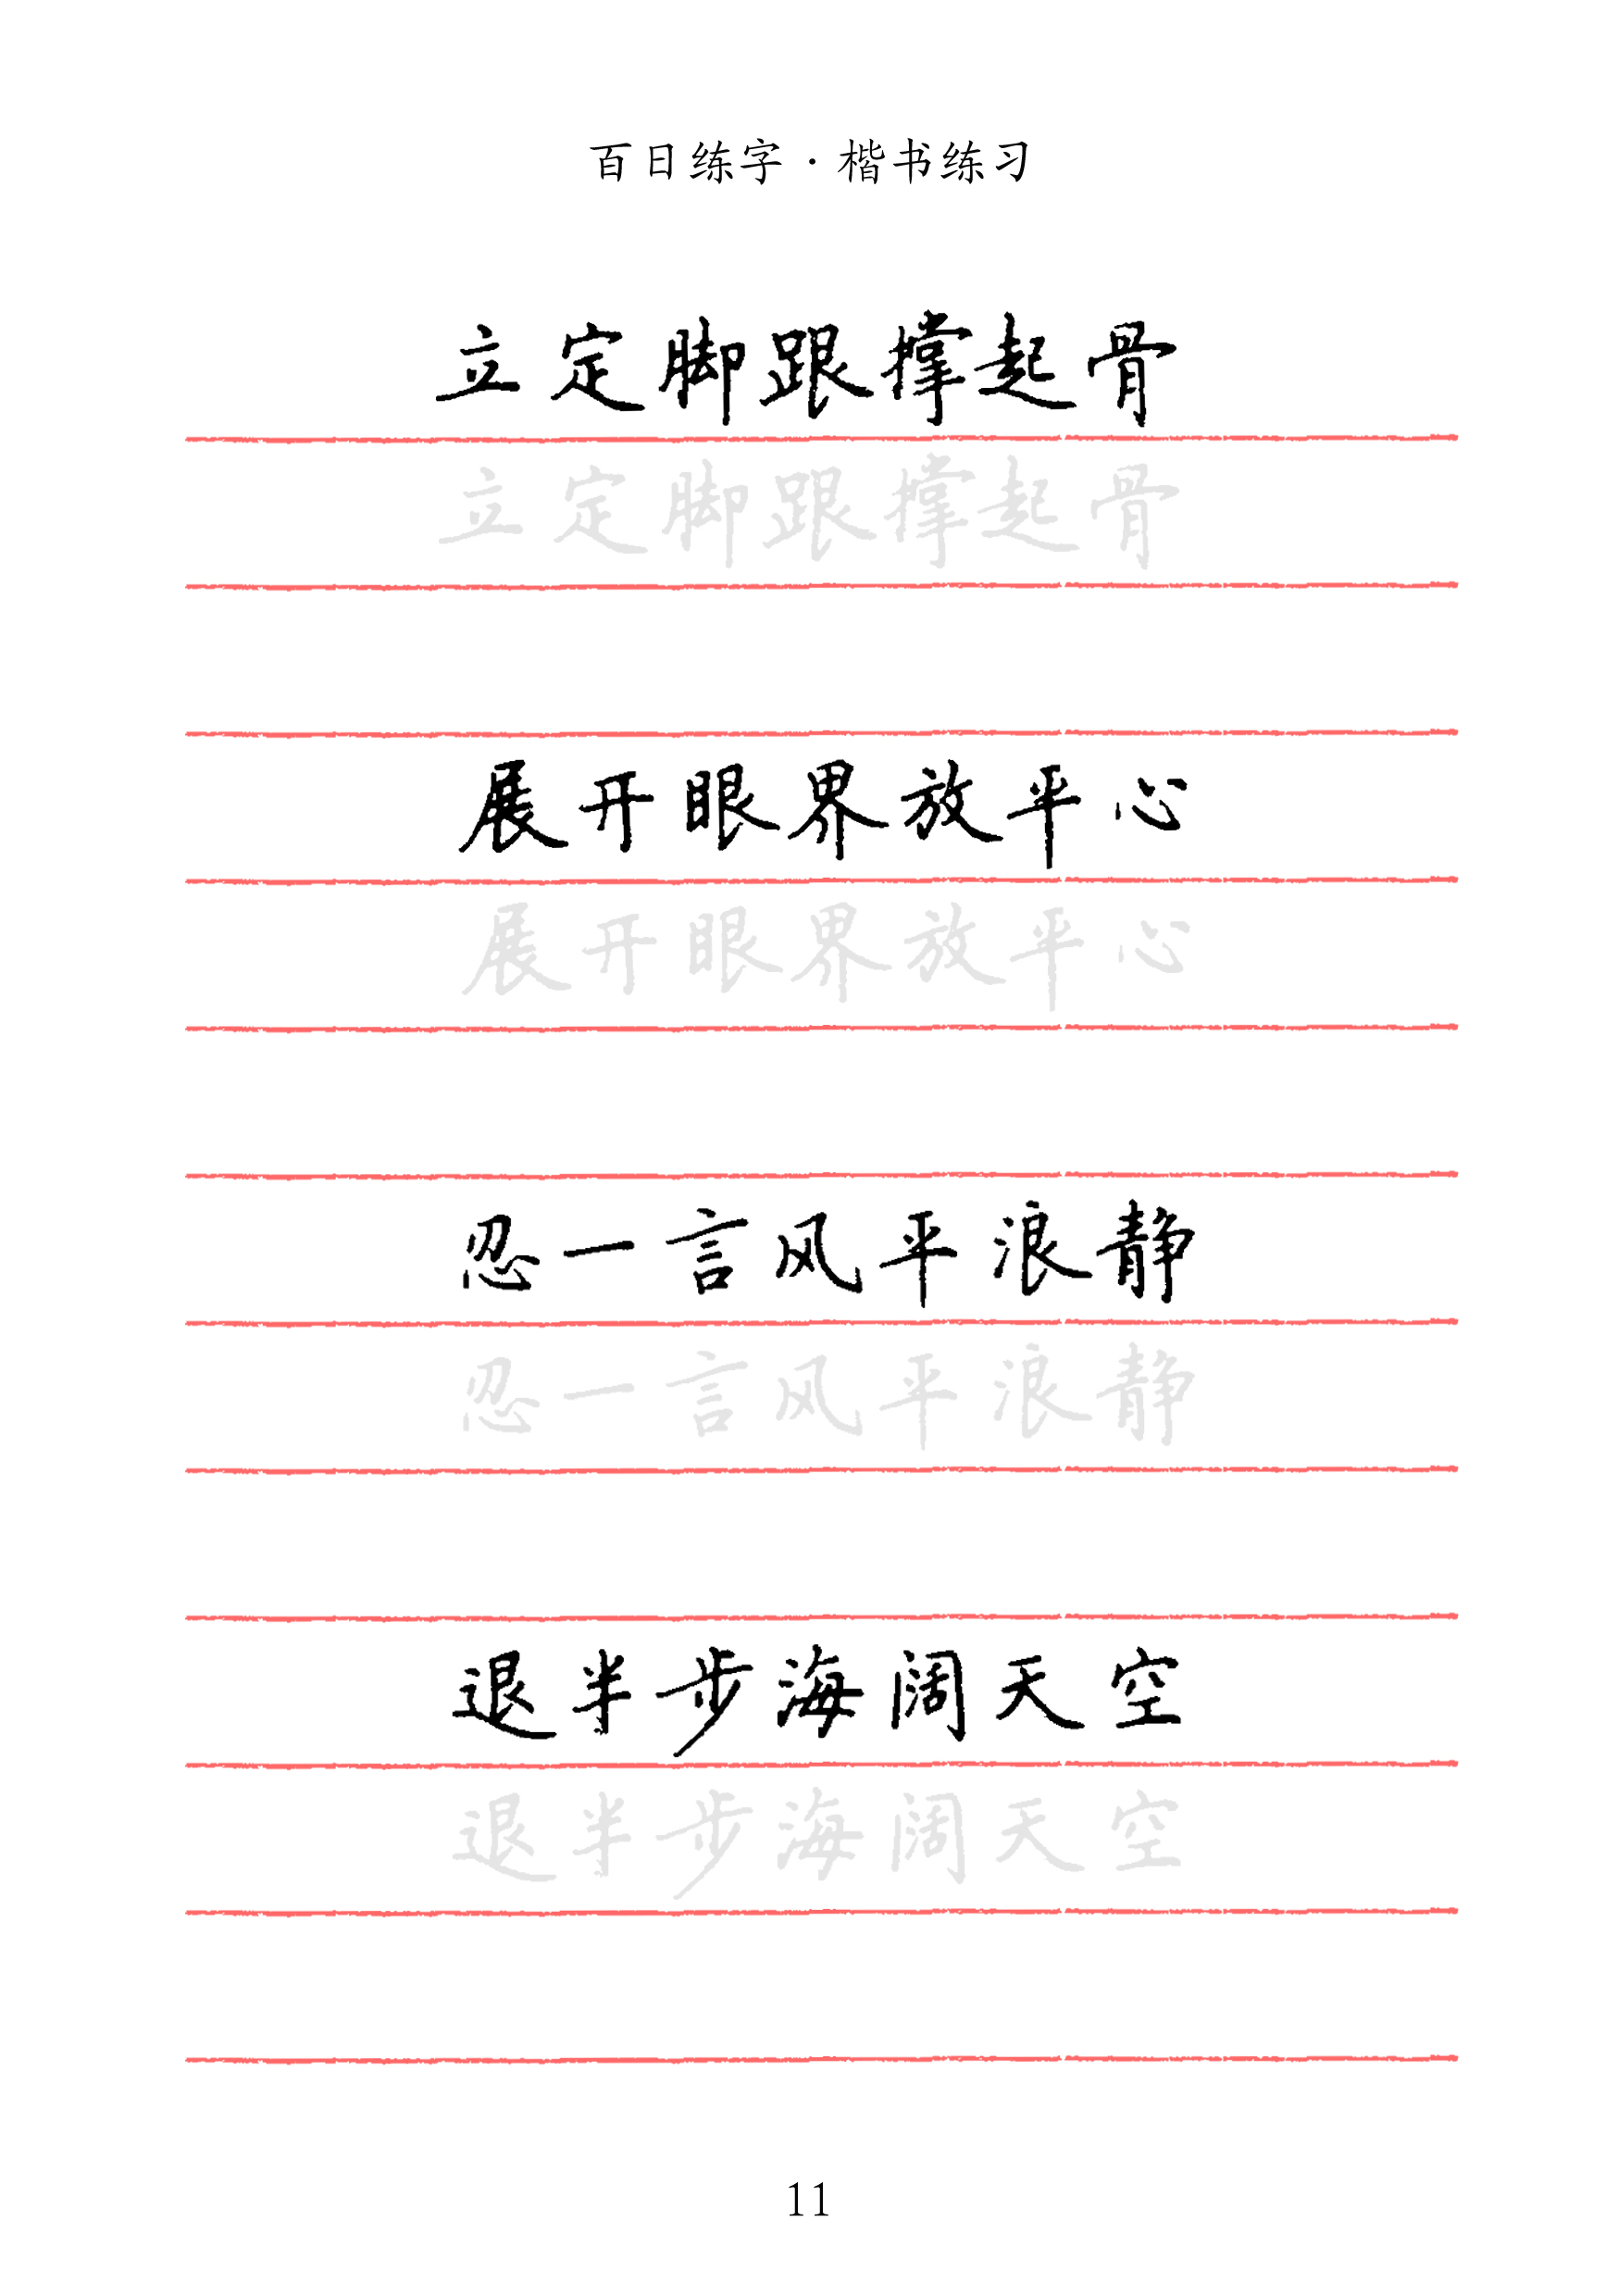 百日练字·楷书练习
立定脚跟撑起骨
立定脚跟撑起骨
展开眼界放平心
展开眼界放平心
忍一言风平浪静
忍一言风平浪静
退半步海阔天空
退半步海阔天空
11